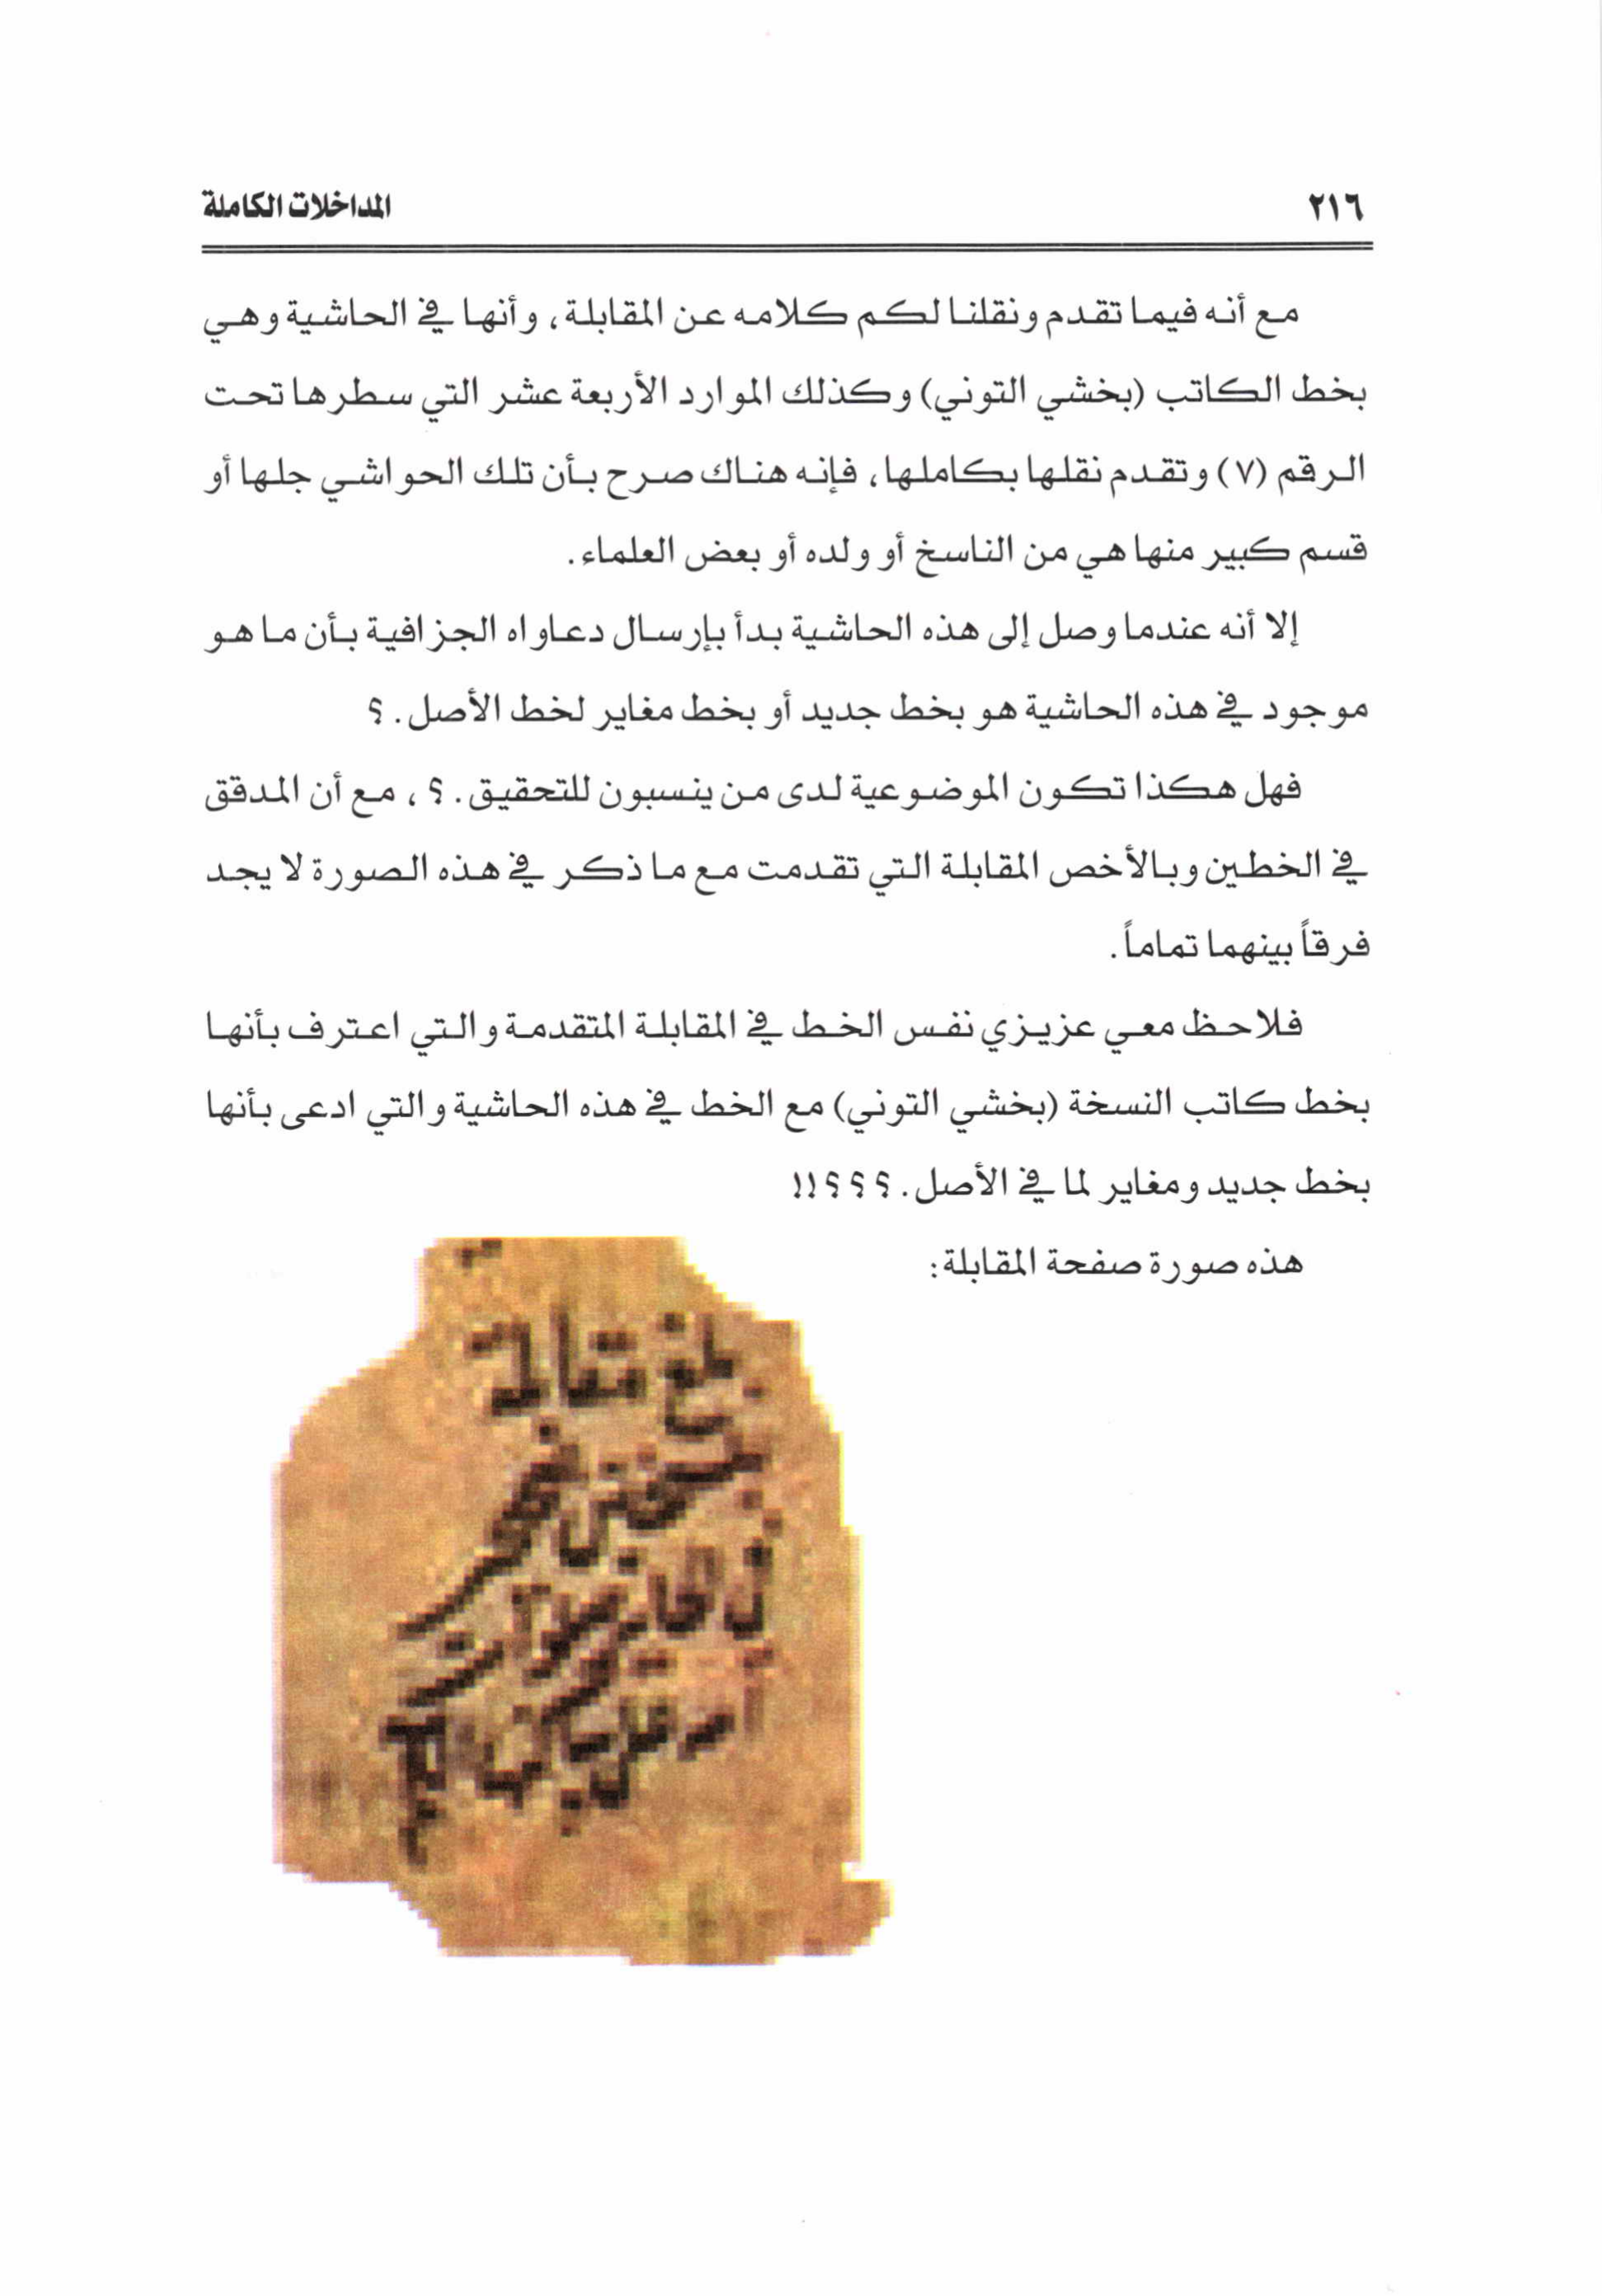 ٢١٦
المداخلات الكاملة
مع أنه فيما تقدم ونقلنا لكم كلامه عن المقابلة، وأنها في الحاشية وهي
بخط الكاتب (بخشي التوني) وكذلك الموارد الأربعة عشر التي سطرها تحت
الرقم (٧) وتقدم نقلها بكاملها، فإنه هناك صرح بأن تلك الحواشي جلها أو
قسم كبير منها هي من الناسخ أو ولده أو بعض العلماء.
إلا أنه عندما وصل إلى هذه الحاشية بدأ بإرسال دعاواه الجزافية بأن ما هو
موجود في هذه الحاشية هو بخط جديد أو بخط مغاير لخط الأصل.؟
فهل هكذا تكون الموضوعية لدى من ينسبون للتحقيق.؟، مع أن المدقق
في الخطين وبالأخص المقابلة التي تقدمت مع ما ذكر في هذه الصورة لا يجد
فرقاً بينهما تماماً.
فلاحظ معي عزيزي نفس الخط في المقابلة المتقدمة والتي اعترف بأنها
بخط كاتب النسخة (بخشي التوني) مع الخط في هذه الحاشية والتي ادعى بأنها
بخط جديد ومغاير لما في الأصل.؟؟؟!!
هذه صورة صفحة المقابلة: